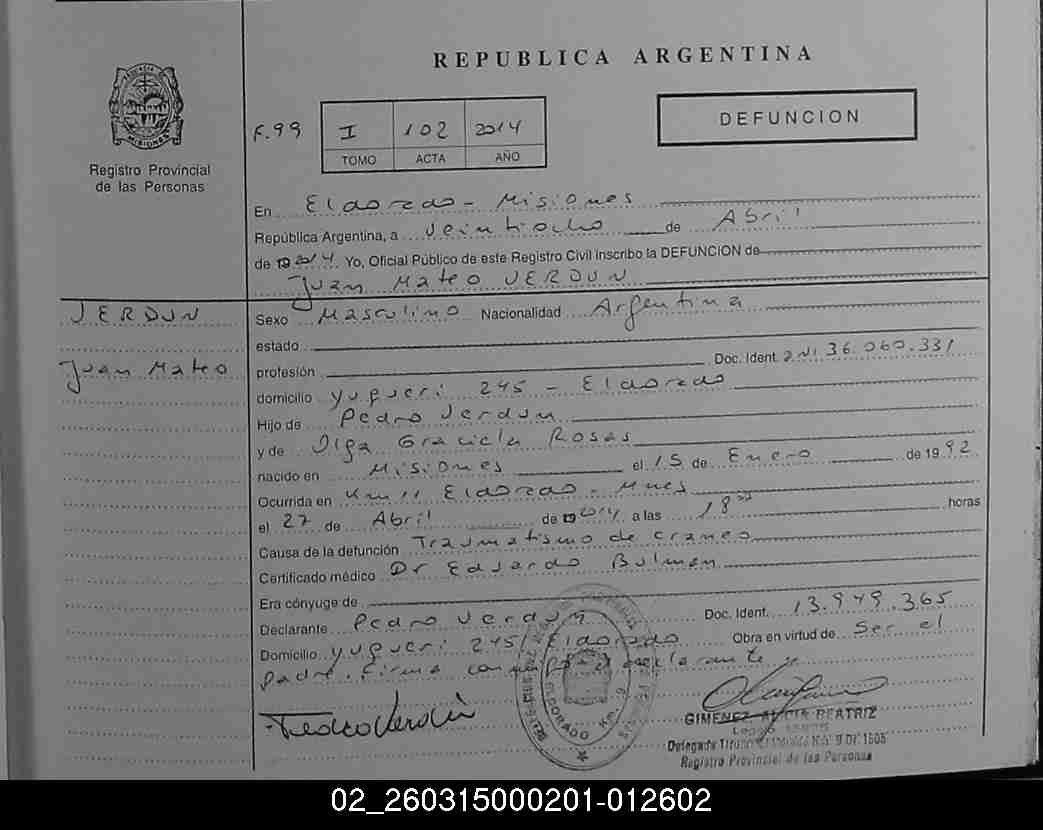 REPUBLICA ARGENTINA
MISIONES
Registro Provincial
de las Personas
F.99
I 102 2014
TOMO ACTA AÑO
DEFUNCION
En Eldorado - Misiones
República Argentina, a Veintiocho de Abril
de 2014 Yo, Oficial Público de este Registro Civil inscribo la DEFUNCION de
Juan Mateo VERDUN
VERDUN
Juan Mateo
Sexo Masculino Nacionalidad Argentina
estado
profesión Doc. Ident. DNI 36.060.331
domicilio Yugueri 245 - Eldorado
Hijo de Pedro Verdun
y de Olga Graciela Rosas
nacido en Misiones el 15 de Enero de 1992
Ocurrida en Km 11 Eldorado - Mnes
el 27 de Abril de 2014 a las 18 horas
Causa de la defunción Traumatismo de craneo
Certificado médico Dr Eduardo Bulman
Era cónyuge de
Declarante Pedro Verdun Doc. Ident. 13.949.365
Domicilio Yugueri 245 / Eldorado Obra en virtud de Ser el
padre. Firma declarante
Pedro Verdun
ELDORADO Km. 9
GIMENEZ ALICIA BEATRIZ
Registro Provincial de las Personas
02_260315000201-012602